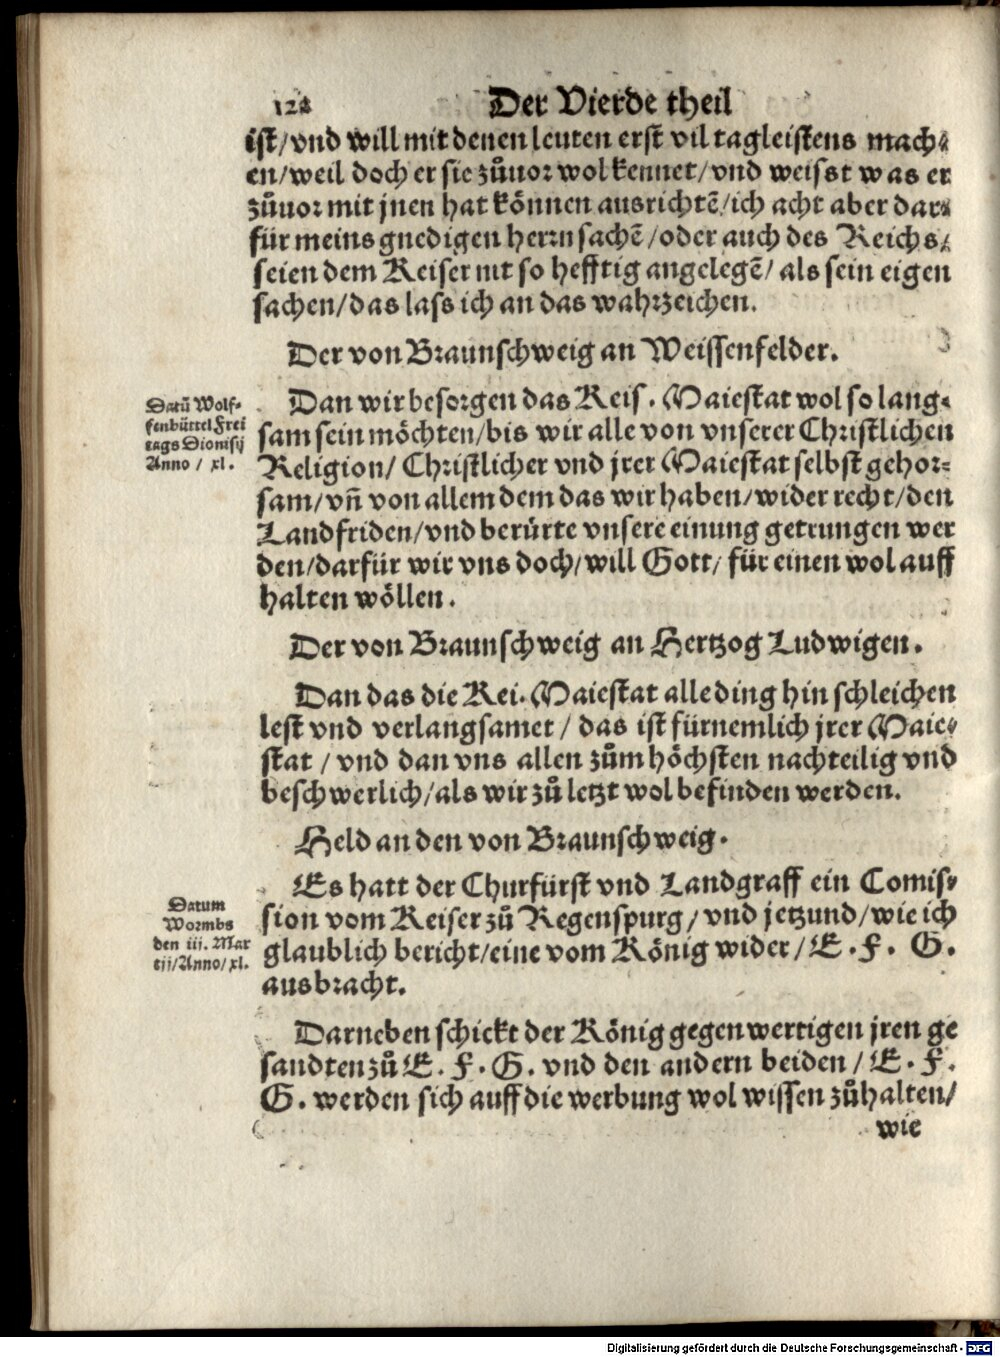 124 Der Vierde theil
ist/vnd will mit denen leuten erst vil tagleistens mach⸗
en/weil doch er sie zůuor wol kennet/vnd weisst was er
zůuor mit jnen hat können ausrichtẽ/ich acht aber dar⸗
für meins gnedigen herrn sachẽ/oder auch des Reichs/
seien dem Keiser nit so hefftig angelegẽ/als sein eigen
sachen/das lass ich an das wahrzeichen.
Der von Braunschweig an Weissenfelder.
Datũ Wolf⸗
fenbüttel Frei
tags Dionisij
Anno / xl.
Dan wir besorgen das Keis. Maiestat wol so lang⸗
sam sein möchten/bis wir alle von vnserer Christlichen
Religion/ Christlicher vnd jrer Maiestat selbst gehor⸗
sam/vñ von allem dem das wir haben/wider recht/den
Landfriden/vnd berürte vnsere einung getrungen wer
den/darfür wir vns doch/will Gott/ für einen wol auff
halten wöllen.
Der von Braunschweig an Hertzog Ludwigen.
Dan das die Kei. Maiestat alle ding hin schleichen
lest vnd verlangsamet / das ist fürnemlich jrer Maie⸗
stat / vnd dan vns allen zům höchsten nachteilig vnd
beschwerlich/als wir zů letzt wol befinden werden.
Held an den von Braunschweig.
Datum
Wormbs
den iij. Mar
tij/Anno/xl.
Es hatt der Churfürst vnd Landgraff ein Comis⸗
sion vom Keiser zů Regenspurg/vnd jetzund/wie ich
glaublich bericht/eine vom König wider/E. F. G.
ausbracht.
Darneben schickt der König gegenwertigen jren ge
sandten zů E. F. G. vnd den andern beiden / E. F.
G. werden sich auff die werbung wol wissen zůhalten/
wie
Digitalisierung gefördert durch die Deutsche Forschungsgemeinschaft - DFG